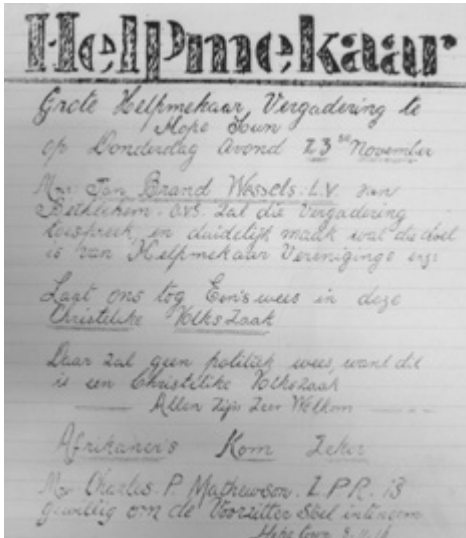 Helpmekaar
Grote Helpmekaar Vergadering te
Hope Town
op Donderdag Avond 23ste November
Mnr Jan Brand Wessels. L.V. van
Bethlehem. O.V.S. zal die Vergadering
toespreek, en duidelijk maak wat die doel
is van Helpmekaar Verenigings enz.
Laat ons tog Een's wees in deze
Christelike Volkszaak
Daar zal geen politiek wees, want dit
is een Christelike Volkszaak
Allen Zijn Zeer Welkom
Afrikaner's Kom Zeker
Mnr Charles. P. Mathewson. L.P.R. is
gewillig om de Voorzitter Stoel inteneem
Hope Town